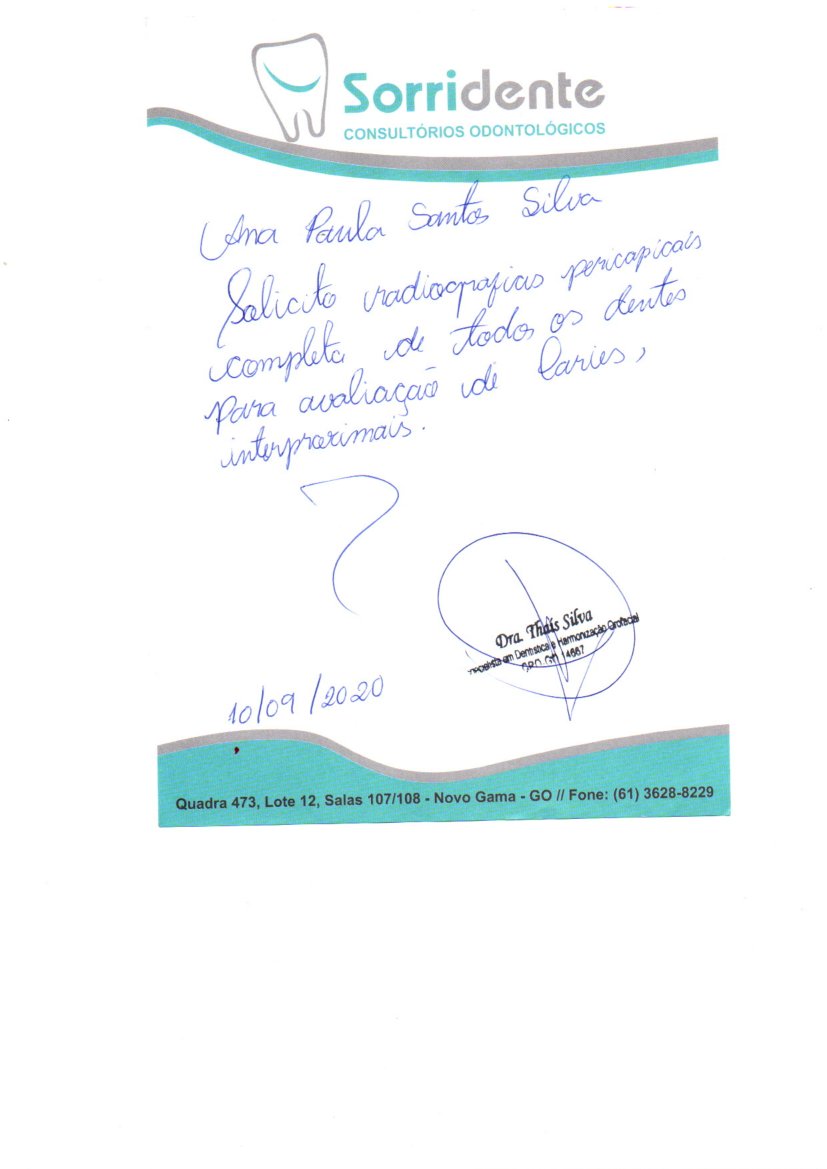 Sorridente
CONSULTÓRIOS ODONTOLÓGICOS
Ana Paula Santos Silva
Solicito radiografias pericapicais
completa de todos os dentes
para avaliação de Caries,
interproximais.
Dra. Thaís Silva
Especialista em Dentística e Harmonização Orofacial
C.R.O. GO 14667
10/09/2020
Quadra 473, Lote 12, Salas 107/108 - Novo Gama - GO // Fone: (61) 3628-8229